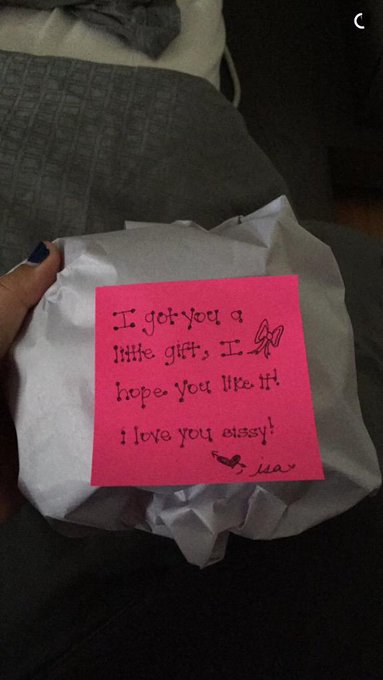 I got you a
little gift, I
hope you like it!
i love you sissy!
isa